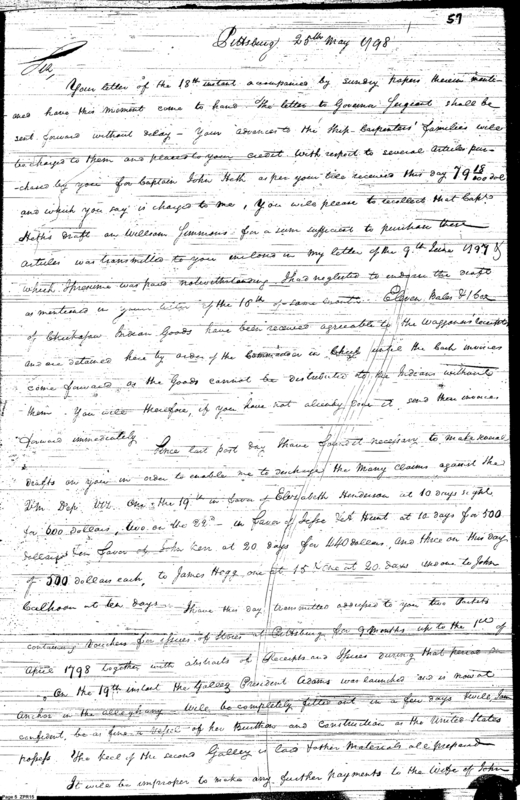 57
Pittsburg 25th May 1798
Sir,
Your letter of the 18th instant accompanied by sundry papers therein menti-
oned have this moment come to hand The letter to Governor Sargeant shall be
sent forward without delay - Your advances to the Ship Carpenters' families will
be charged to them and placed to your credit. With respect to several articles pur-
chased by you for Captain John Heth as per your bill received this day 79
and which you say is charged to me, You will please to recollect that Capt.
Heth's draft on William Simmons for a sum sufficient to purchase these
articles was transmitted to you inclosed in my letter of the 9th June 1797 &
which I presume was paid notwithstanding I had neglected to endorse the draft
as mentioned in your letter of the 16th of same month. Eleven Bales & 1 Box
of Chickasaw Indian Goods have been received agreeable to the Waggoners receipts
and are detained here by order of the Commander in Chief until the Cash invoices
come forward, as the Goods cannot be distributed to the Indians without
them You will therefore, if you have not already done it, send these invoices
forward immediately.
Since last post day I have found it necessary to make several
drafts on you in order to enable me to discharge the many claims against the
Qr Mr Dept. Viz. One the 19th in favor of Elizabeth Henderson at 10 days sight
for 600 Dollars, two on the 22d. in favor of Jesse Hunt at 10 days for 500
dollars & in Favor of John Kerr at 20 days for 440 dollars, and three on this day
of 500 dollars each, to James Hogg one at 15 & one at 20 days and one to John
Calhoon at ten days - I have this day transmitted addressed to you two Packets
containing Vouchers for issues of Stores at Pittsburg for 9 months up to the 1st of
April 1798 together with abstracts of Receipts and Issues during that period
On the 19th instant the Galley President Adams was launched and is now at
Anchor in the allegheny - will be completely fitted out in a few days & will, I am
confident, be as fine a vessel of her Burthen and Construction as the United States
possess The keel of the second Galley is laid & other Materials all prepared
It will be improper to make any further payments to the Wife of John
Page 5 ZPR15